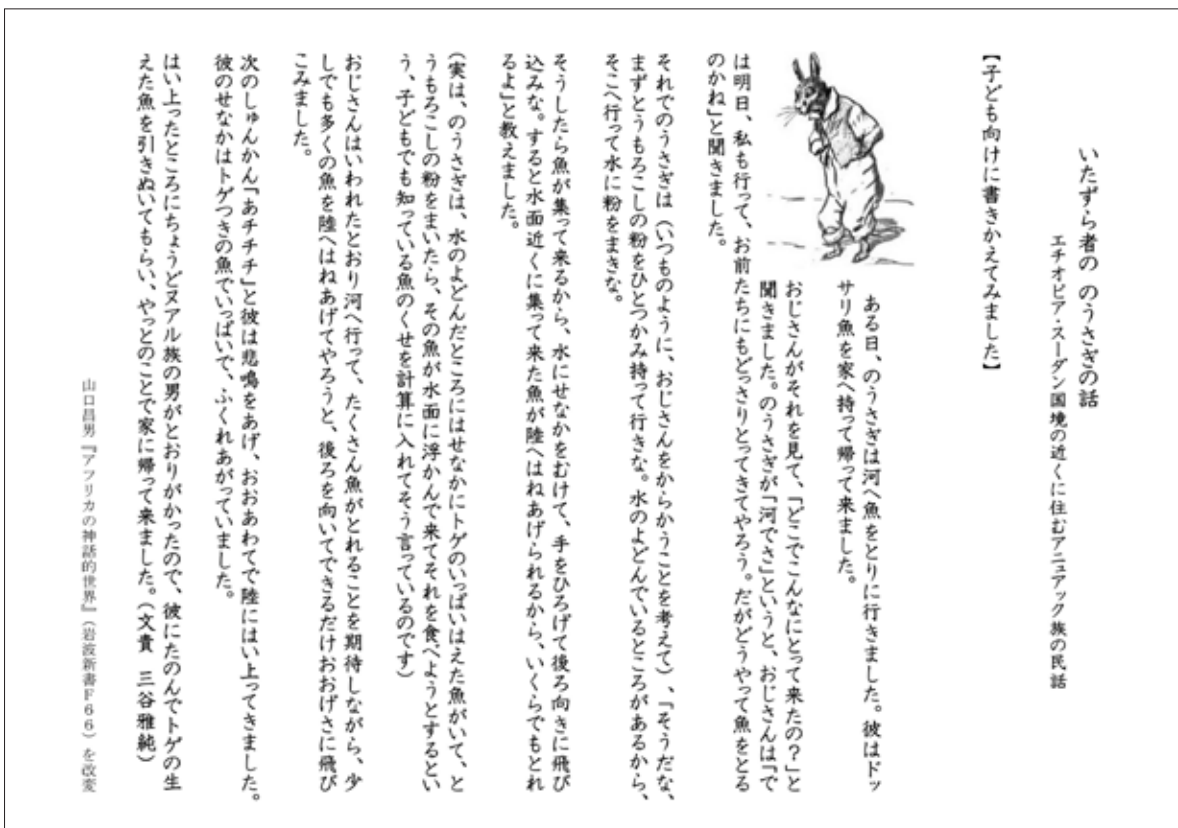 いたずら者の のうさぎの話
エチオピア・スーダン国境の近くに住むアニュアック族の民話
【子ども向けに書きかえてみました】
ある日、のうさぎは河へ魚をとりに行きました。彼はドッ
サリ魚を家へ持って帰って来ました。
おじさんがそれを見て、「どこでこんなにとって来たの?」と
聞きました。のうさぎが「河でさ」というと、おじさんは「で
は明日、私も行って、お前たちにもどっさりとってきてやろう。だがどうやって魚をとる
のかね」と聞きました。
それでのうさぎは(いつものように、おじさんをからかうことを考えて)、「そうだな、
まずとうもろこしの粉をひとつかみ持って行きな。水のよどんでいるところがあるから、
そこへ行って水に粉をまきな。
そうしたら魚が集って来るから、水にせなかをむけて、手をひろげて後ろ向きに飛び
込みな。すると水面近くに集って来た魚が陸へはねあげられるから、いくらでもとれ
るよ」と教えました。
(実は、のうさぎは、水のよどんだところにはせなかにトゲのいっぱいはえた魚がいて、と
うもろこしの粉をまいたら、その魚が水面に浮かんで来てそれを食べようとするとい
う、子どもでも知っている魚のくせを計算に入れてそう言っているのです)
おじさんはいわれたとおり河へ行って、たくさん魚がとれることを期待しながら、少
しでも多くの魚を陸へはねあげてやろうと、後ろを向いてできるだけおおげさに飛び
こみました。
次のしゅんかん「あチチチ」と彼は悲鳴をあげ、おおあわてで陸にはい上ってきました。
彼のせなかはトゲつきの魚でいっぱいで、ふくれあがっていました。
はい上ったところにちょうどヌアル族の男がとおりがかったので、彼にたのんでトゲの生
えた魚を引きぬいてもらい、やっとのことで家に帰って来ました。(文責 三谷雅純)
山口昌男『アフリカの神話的世界』(岩波新書F66)を改変